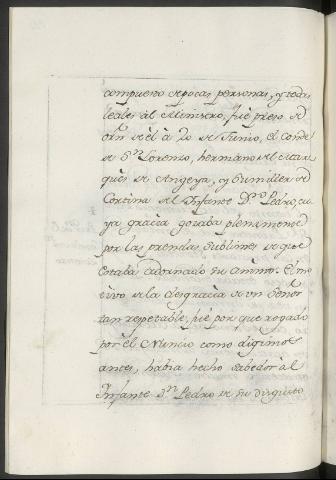 compuesto de pocas personas, y todas
leales al Ministro, fue preso de
orñ de èl à 20 de Junio, el Conde
de Sn. Lorenzo, hermano del Mar
quès de Angeya, y Sumiller de
Cortina del Infante Dn. Pedro, cu
ya gracia gozaba plenamente
por las prendas sublimes de que
estaba adornado su animo. El mo
tivo de la desgracia de un Señor
tan respetable, fuè por que rogado
por èl Nuncio como digimos
antes, habia hecho sabedor àl
Infante Dn. Pedro de su disgusto